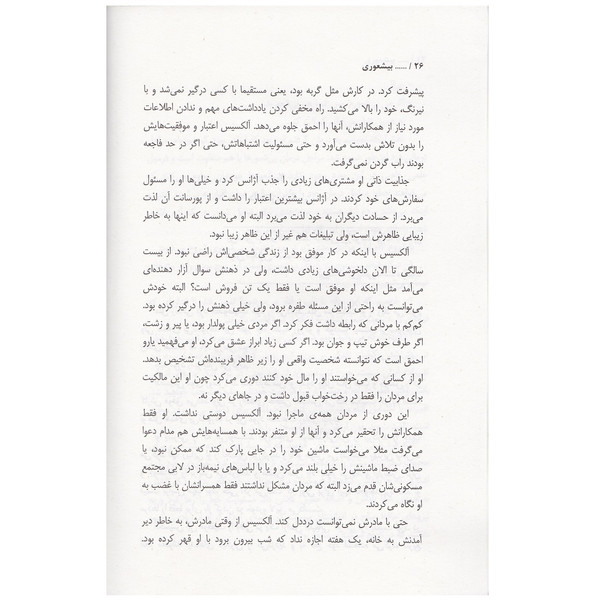 ۲۶ / ...... بیشعوری
پیشرفت کرد. در کارش مثل گربه بود، یعنی مستقیما با کسی درگیر نمی‌شد و با
نیرنگ، خود را بالا می‌کشید. راه مخفی کردن یادداشت‌های مهم و ندادن اطلاعات
مورد نیاز از همکارانش، آنها را احمق جلوه می‌دهد. آلکسیس اعتبار و موفقیت‌هایش
را بدون تلاش بدست می‌آورد و حتی مسئولیت اشتباهاتش، حتی اگر در حد فاجعه
بودند راب گردن نمی‌گرفت.
جذابیت ذاتی او مشتری‌های زیادی را جذب آژانس کرد و خیلی‌ها او را مسئول
سفارش‌های خود کردند. در آژانس بیشترین اعتبار را داشت و از پورسانت آن لذت
می‌برد. از حسادت دیگران به خود لذت می‌برد البته او می‌دانست که اینها به خاطر
زیبایی ظاهرش است، ولی تبلیغات هم غیر از این ظاهر زیبا نبود.
آلکسیس با اینکه در کار موفق بود از زندگی شخصی‌اش راضی نبود. از بیست
سالگی تا الان دلخوشی‌های زیادی داشت، ولی در ذهنش سوال آزار دهنده‌ای
می‌آمد مثل اینکه او موفق است یا فقط یک تن فروش است؟ البته خودش
می‌توانست به راحتی از این مسئله طفره برود، ولی خیلی ذهنش را درگیر کرده بود.
کم‌کم با مردانی که رابطه داشت فکر کرد. اگر مردی خیلی پولدار بود، یا پیر و زشت،
اگر طرف خوش تیپ و جوان بود. اگر کسی زیاد ابراز عشق می‌کرد، او می‌فهمید یارو
احمق است که نتوانسته شخصیت واقعی او را زیر ظاهر فریبنده‌اش تشخیص بدهد.
او از کسانی که می‌خواستند او را مال خود کنند دوری می‌کرد چون او این مالکیت
برای مردان را فقط در رخت‌خواب قبول داشت و در جاهای دیگر نه.
این دوری از مردان همه‌ی ماجرا نبود. آلکسیس دوستی نداشت. او فقط
همکارانش را تحقیر می‌کرد و آنها از او متنفر بودند. با همسایه‌هایش هم مدام دعوا
می‌گرفت مثلا می‌خواست ماشین خود را در جایی پارک کند که ممکن نبود، یا
صدای ضبط ماشینش را خیلی بلند می‌کرد و یا با لباس‌های نیمه‌باز در لابی مجتمع
مسکونی‌شان قدم می‌زد البته که مردان مشکل نداشتند فقط همسرانشان با غضب به
او نگاه می‌کردند.
حتی با مادرش نمی‌توانست درددل کند. آلکسیس از وقتی مادرش، به خاطر دیر
آمدنش به خانه، یک هفته اجازه نداد که شب بیرون برود با او قهر کرده بود.